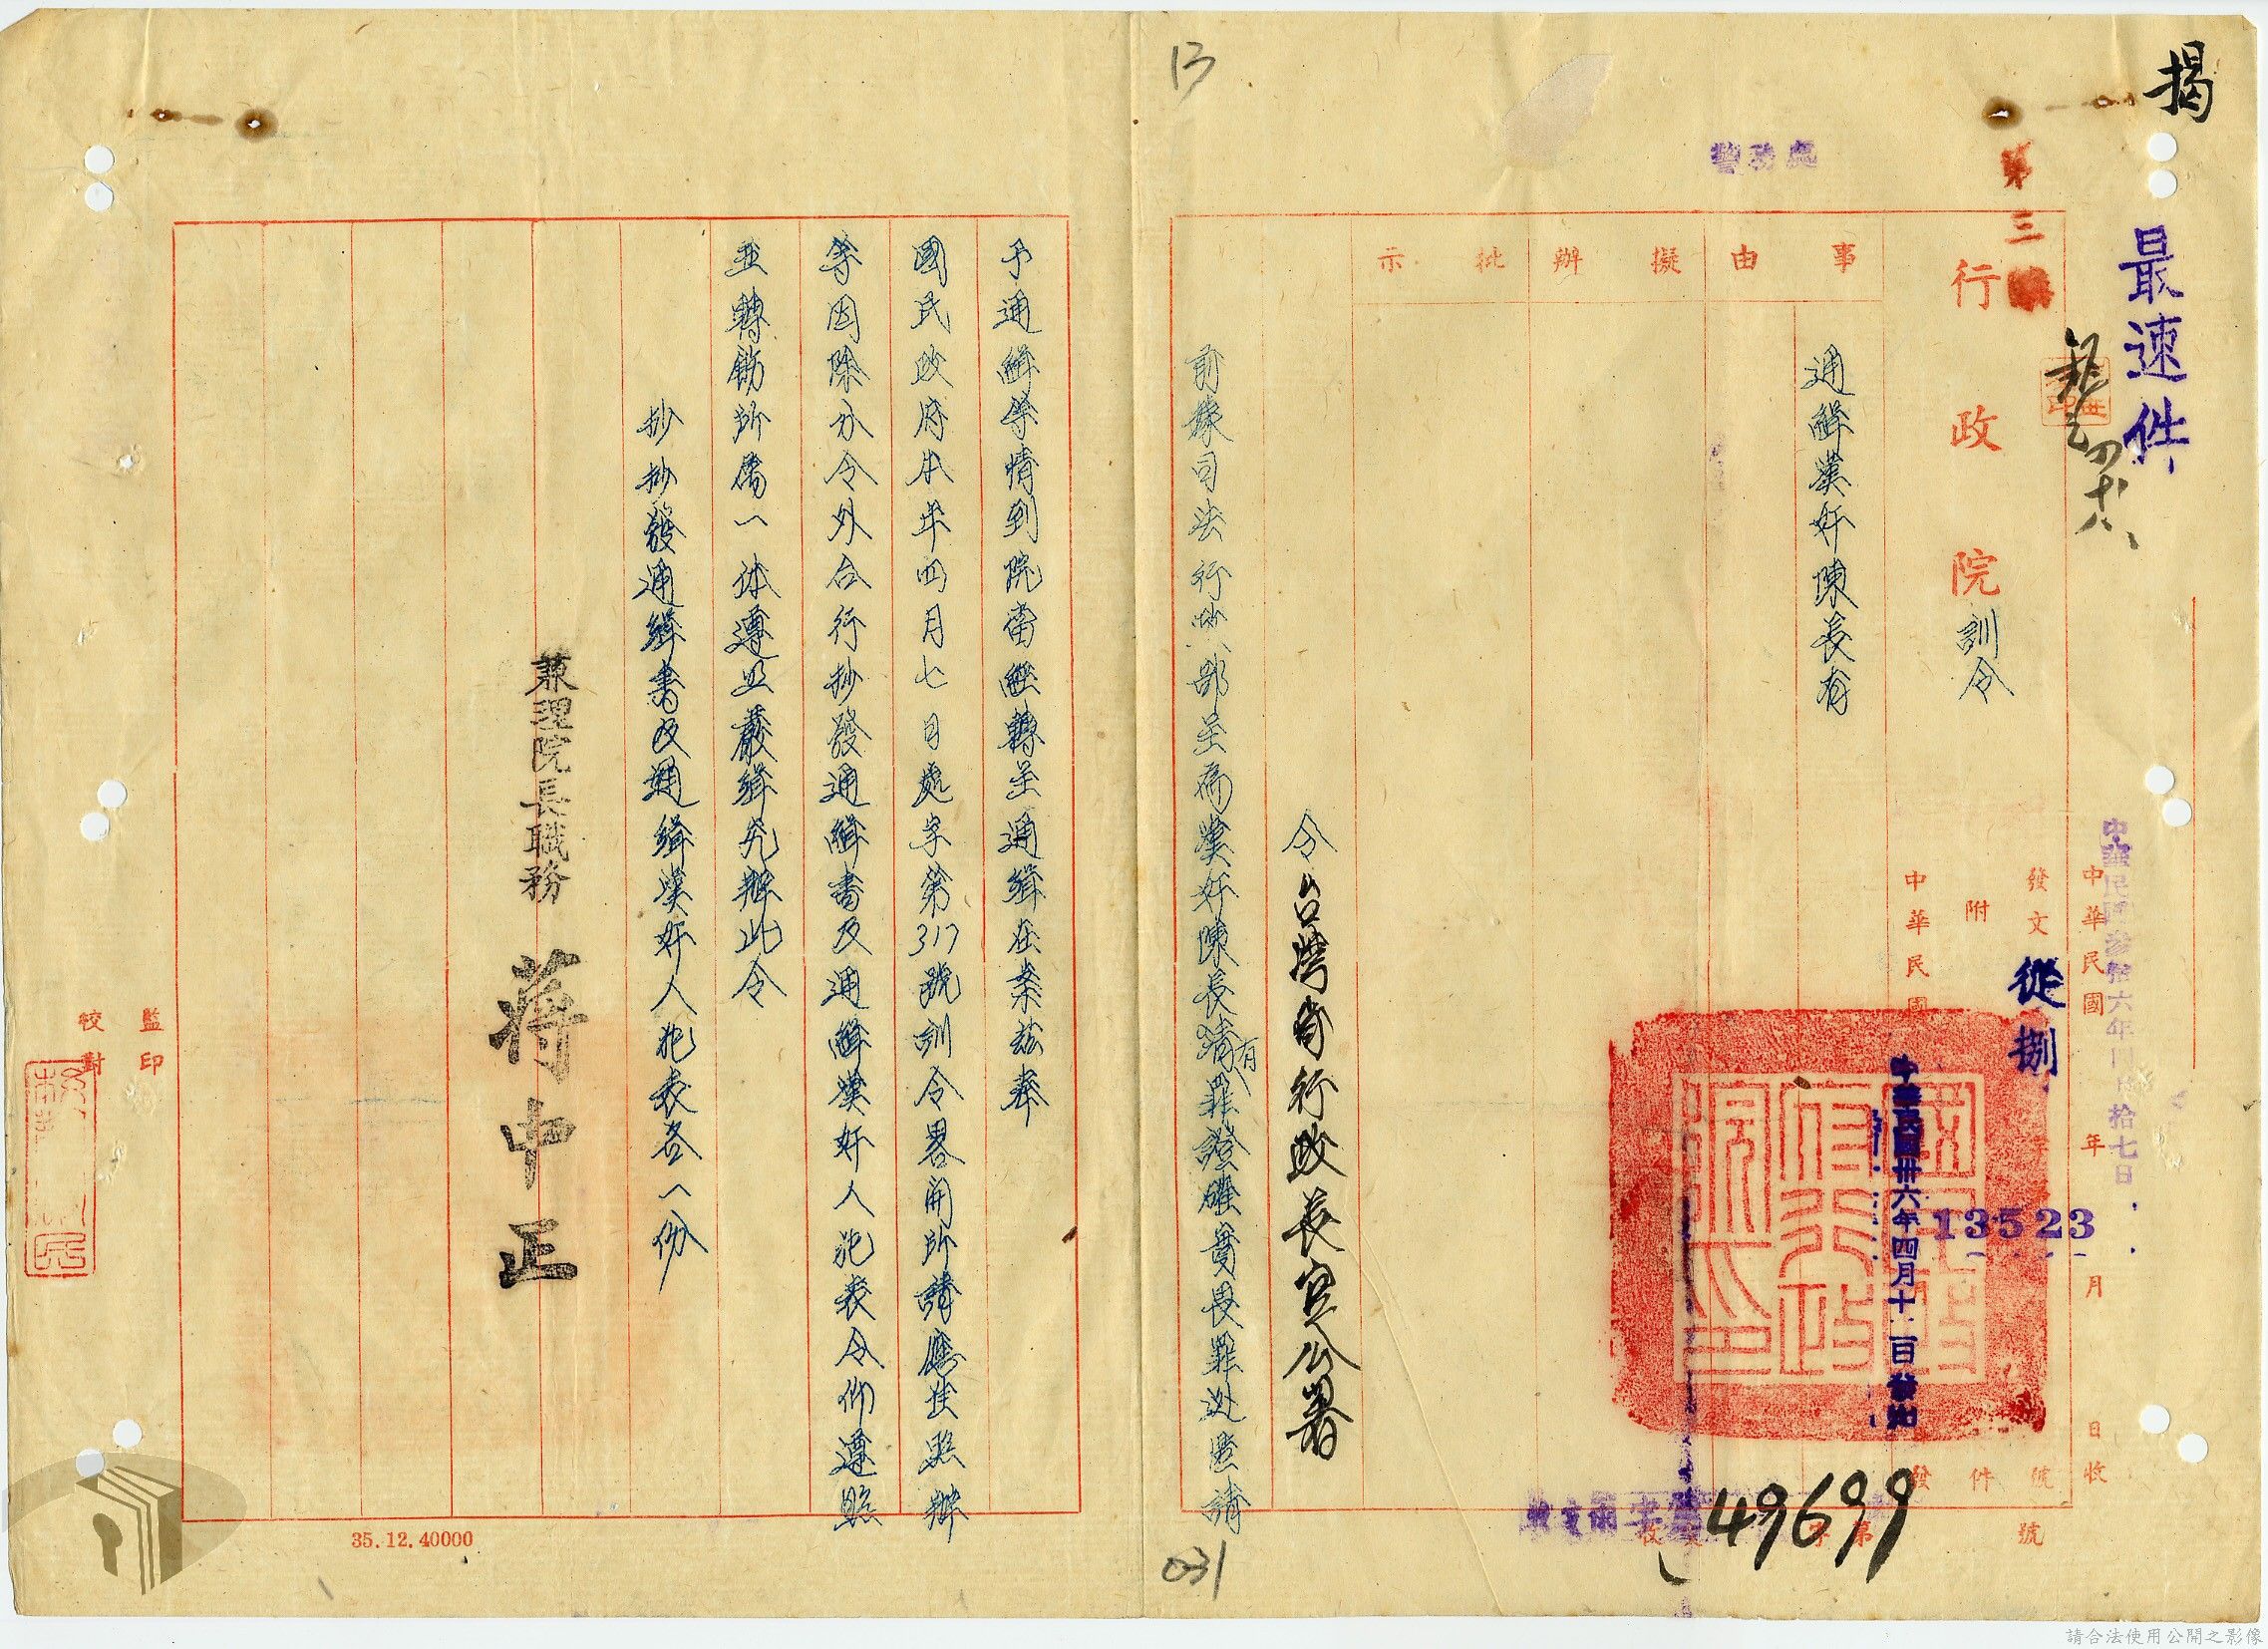 揭
最速件
第三
行政院訓令
中華民國參拾六年四月拾七日
中華民國 年 月 日收
發文 從捌 字第 13523 號
附 件
中華民國卅六年四月十一日發出
警務處
事由
擬辦
批示
通緝漢奸陳長有
49699
令台灣省行政長官公署
前據司法行政部呈為漢奸陳長清有罪證確實畏罪逃匿請
13
031
予通緝等情到院當經轉呈通緝在案茲奉
國民政府本年四月七日處字第317號訓令畧開所請應准照辦
等因除分令外合行抄發通緝書及通緝漢奸人犯表令仰遵照
並轉飭所屬一体遵照嚴緝究辦此令
抄抄發通緝書及通緝漢奸人犯表各一份
兼理院長職務 蔣中正
監印
校對
35.12.40000
請合法使用公開之影像